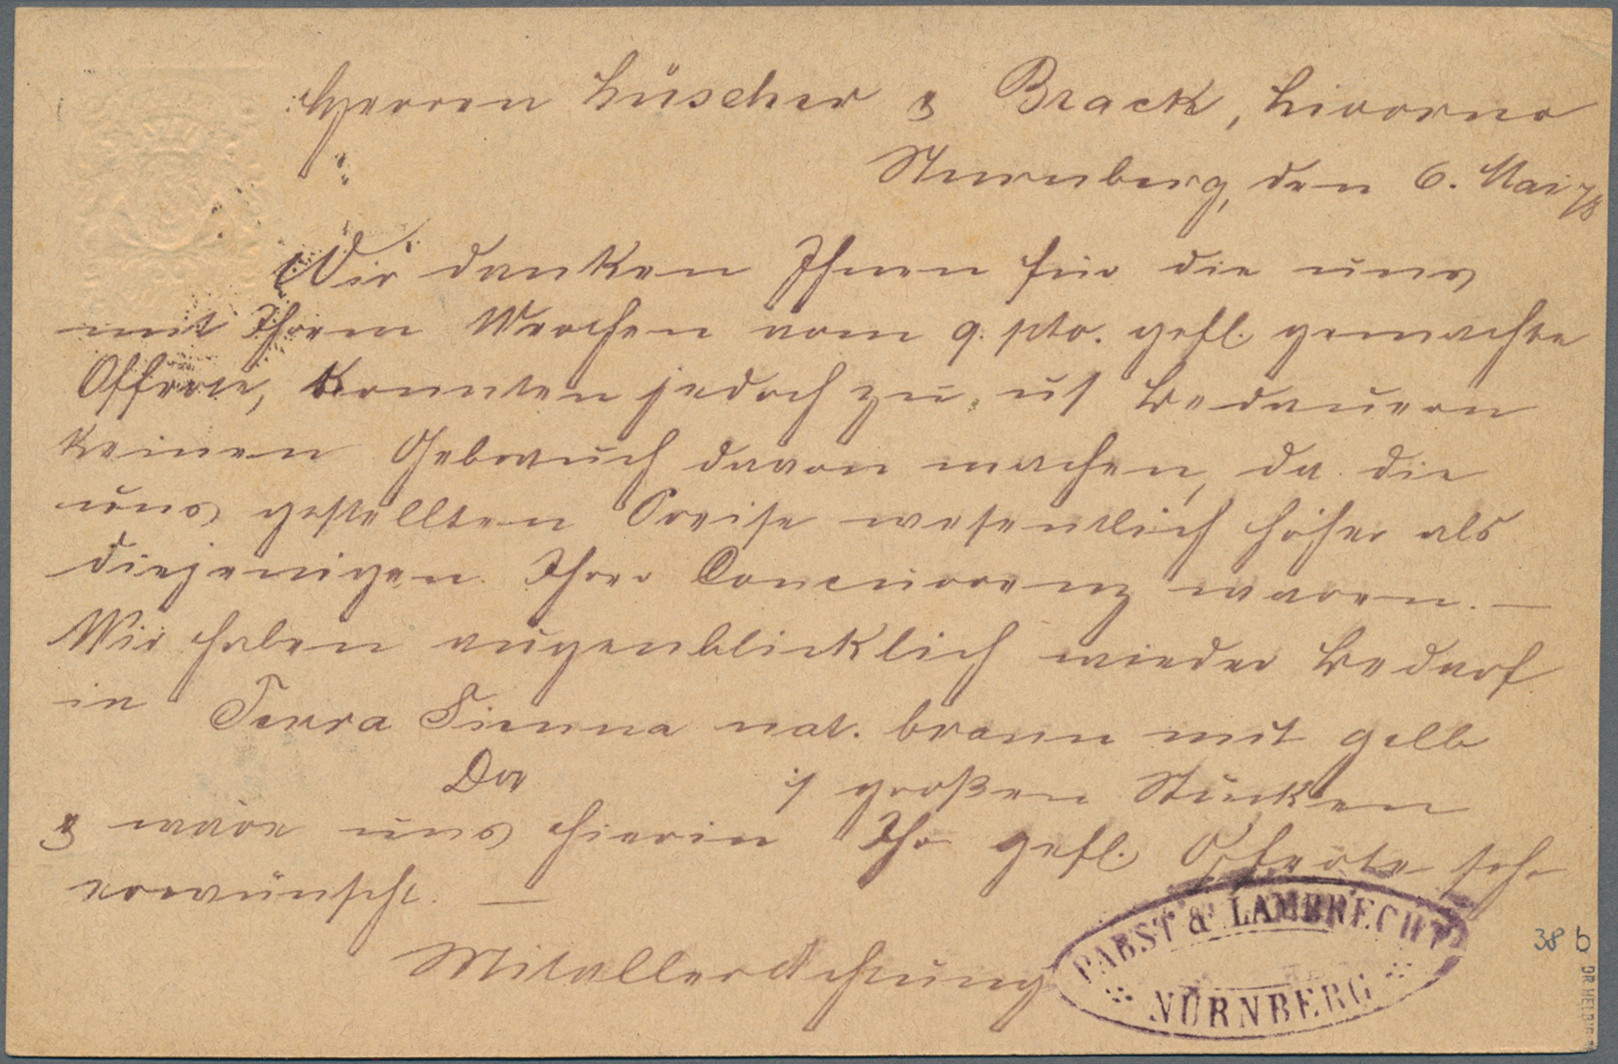 Herren Lüscher & Brack, Livorno
Nurnberg, den 6. Mai 78
Wir danken Ihnen für die uns
mit Ihrem Werthen vom 9. pto. gefl. gemachte
Offerte, konnten jedoch zu uns. Bedauern
keinen Gebrauch davon machen, da die
uns gestellten Preise wesentlich höher als
diejenigen Ihrer Concurrenz waren. —
Wir haben augenblicklich wieder Bedarf
in Terra Sienna nat. braun mit gelb
Do großen Stücken
& wäre uns hierin Ihre gefl. Offerte sehr
erwünscht. —
Mit aller Achtung
PABST & LAMBRECHT
NÜRNBERG
38 b
DR HELBIG